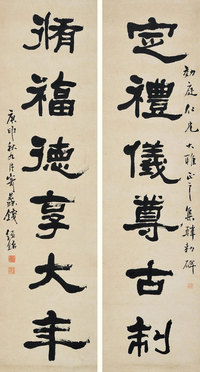 庭仁兄大雅正之集韓勑碑
定禮儀尊古制
脩福德享大年
庚申秋九月錢